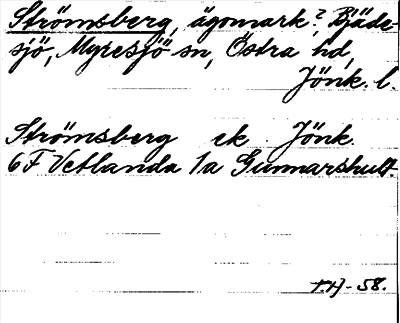 Strömsberg, ägomark?, Bjäde-
sjö, Myresjö sn, Östra hd,
Jönk. l.
Strömsberg ek Jönk.
6F Vetlanda 1a Gunnarshult.
T.H-58.